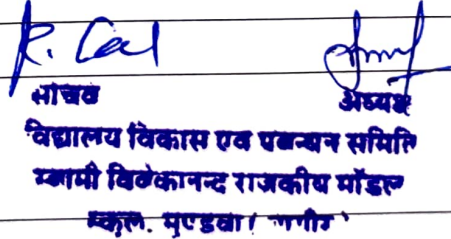 सचिव अध्यक्ष
विद्यालय विकास एव प्रबन्धन समिति
स्वामी विवेकानन्द राजकीय मॉडल
स्कूल. मुण्डवा (